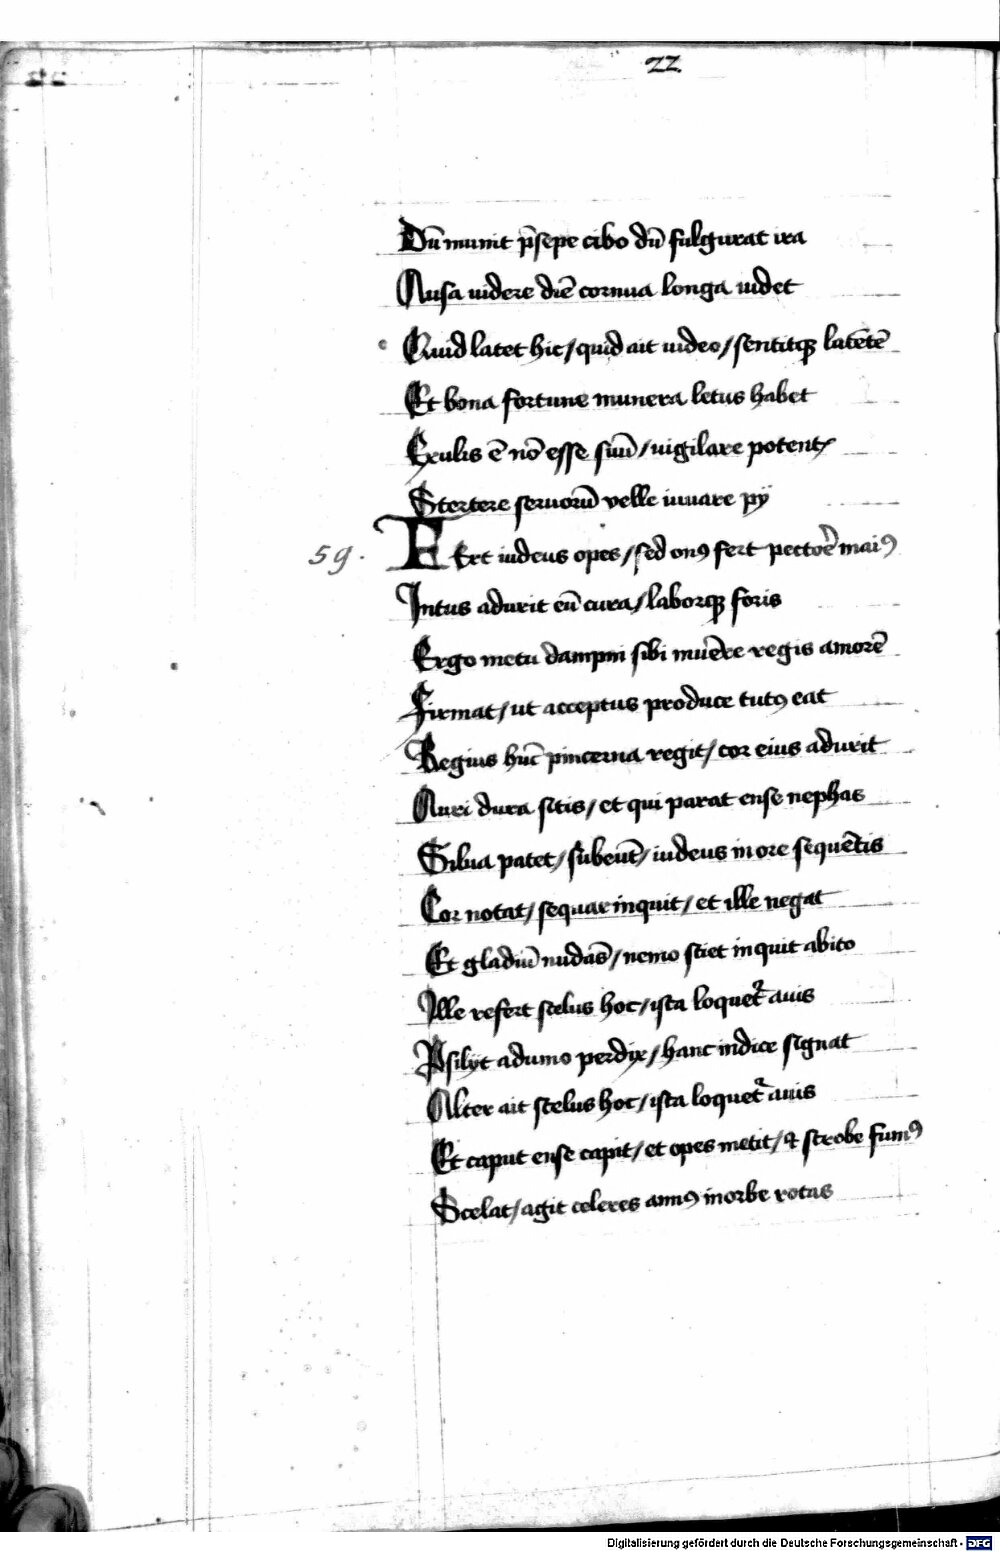 22
Dū munit p̄sepe cibo dū fulgurat ira
Ausa uidere diē cornua longa uidet
Quid latet hic / quid ait uideo / sentitqꝫ latētē
Et bona fortune munera letus habet
Exulis ē nō esse suū / uigilare potentꝭ
Stertere seruorū velle iuuare pÿ
59. FErt iudeus opes / sed onꝯ fert pectoē maiꝯ
Intus adurit eū cura / laborqꝫ foris
Ergo metu dampni sibi muēre regis amorē
Firmat / ut acceptus produce tutꝯ eat
Regius hūc pincerna regit / cor eius adurit
Auri dura sitis / et qui parat ense nephas
Silua patet / subeūt / iudeus in ore sequētis
Cor notat / sequar inquit / et ille negat
Et gladiū nudās / nemo sciet inquit abito
Ille refert scelus hoc / ista loquet᷑ auis
Psilÿt a dumo perdix / hanc indice signat
Alter ait scelus hoc / ista loquet᷑ auis
Et caput ense capit / et opes metit / ⁊ scrobe funꝯ
Scelat / agit celeres annꝯ in orbe rotas
Digitalisierung gefördert durch die Deutsche Forschungsgemeinschaft - DFG